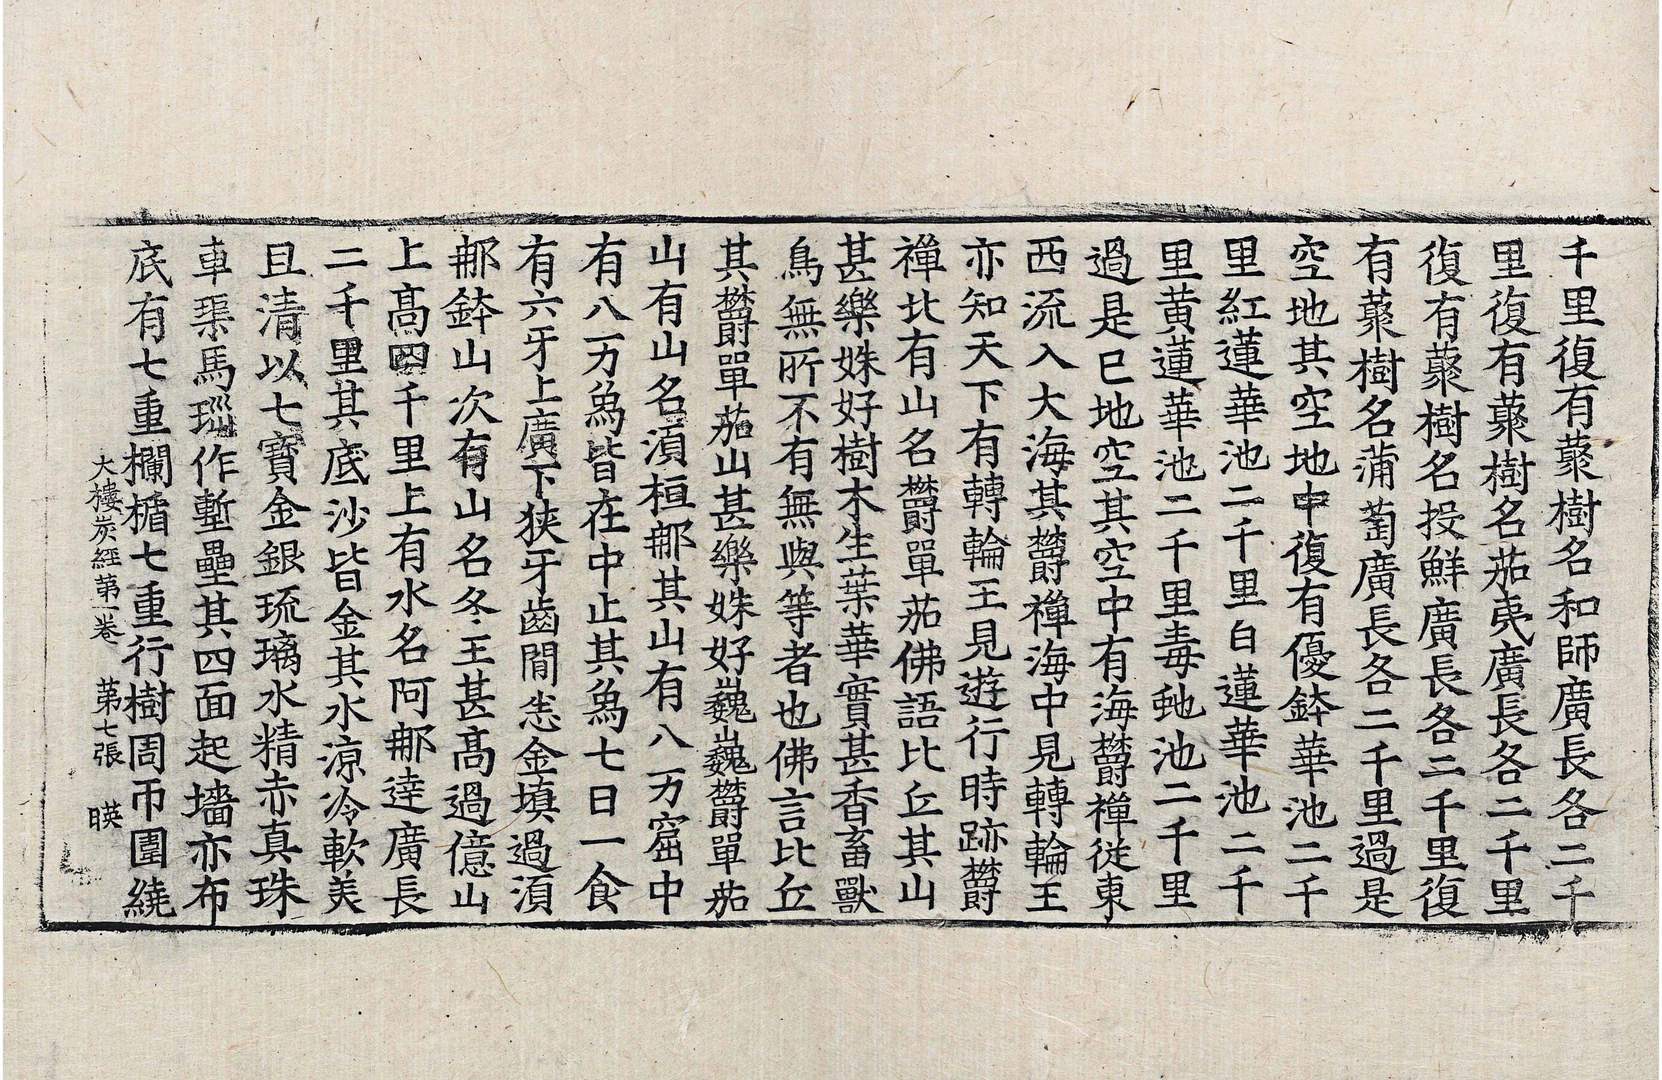 千里復有藂樹名和師廣長各二千
里復有藂樹名茄夷廣長各二千里
復有藂樹名投鮮廣長各二千里復
有藂樹名蒲萄廣長各二千里過是
空地其空地中復有優鉢華池二千
里紅蓮華池二千里白蓮華池二千
里黃蓮華池二千里毒虵池二千里
過是已地空其空中有海欝禪從東
西流入大海其欝禪海中見轉輪王
亦知天下有轉輪王見遊行時跡欝
禪比有山名欝單茄佛語比丘其山
甚樂姝好樹木生葉華實甚香畜獸
鳥無所不有無與等者也佛言比丘
其欝單茄山甚樂姝好巍巍欝單茄
山有山名湏桓那其山有八万窟中
有八万為皆在中止其為七日一食
有六牙上廣下狹牙齒間恙金填過湏
那鉢山次有山名冬王甚高過億山
上高四千里上有水名阿那達廣長
二千里其底沙皆金其水凉冷軟美
且清以七寶金銀琉璃水精赤真珠
車璖馬瑙作塹壘其四面起墻亦布
底有七重欄楯七重行樹周帀圍繞
大樓炭經第一卷 第七張 暎